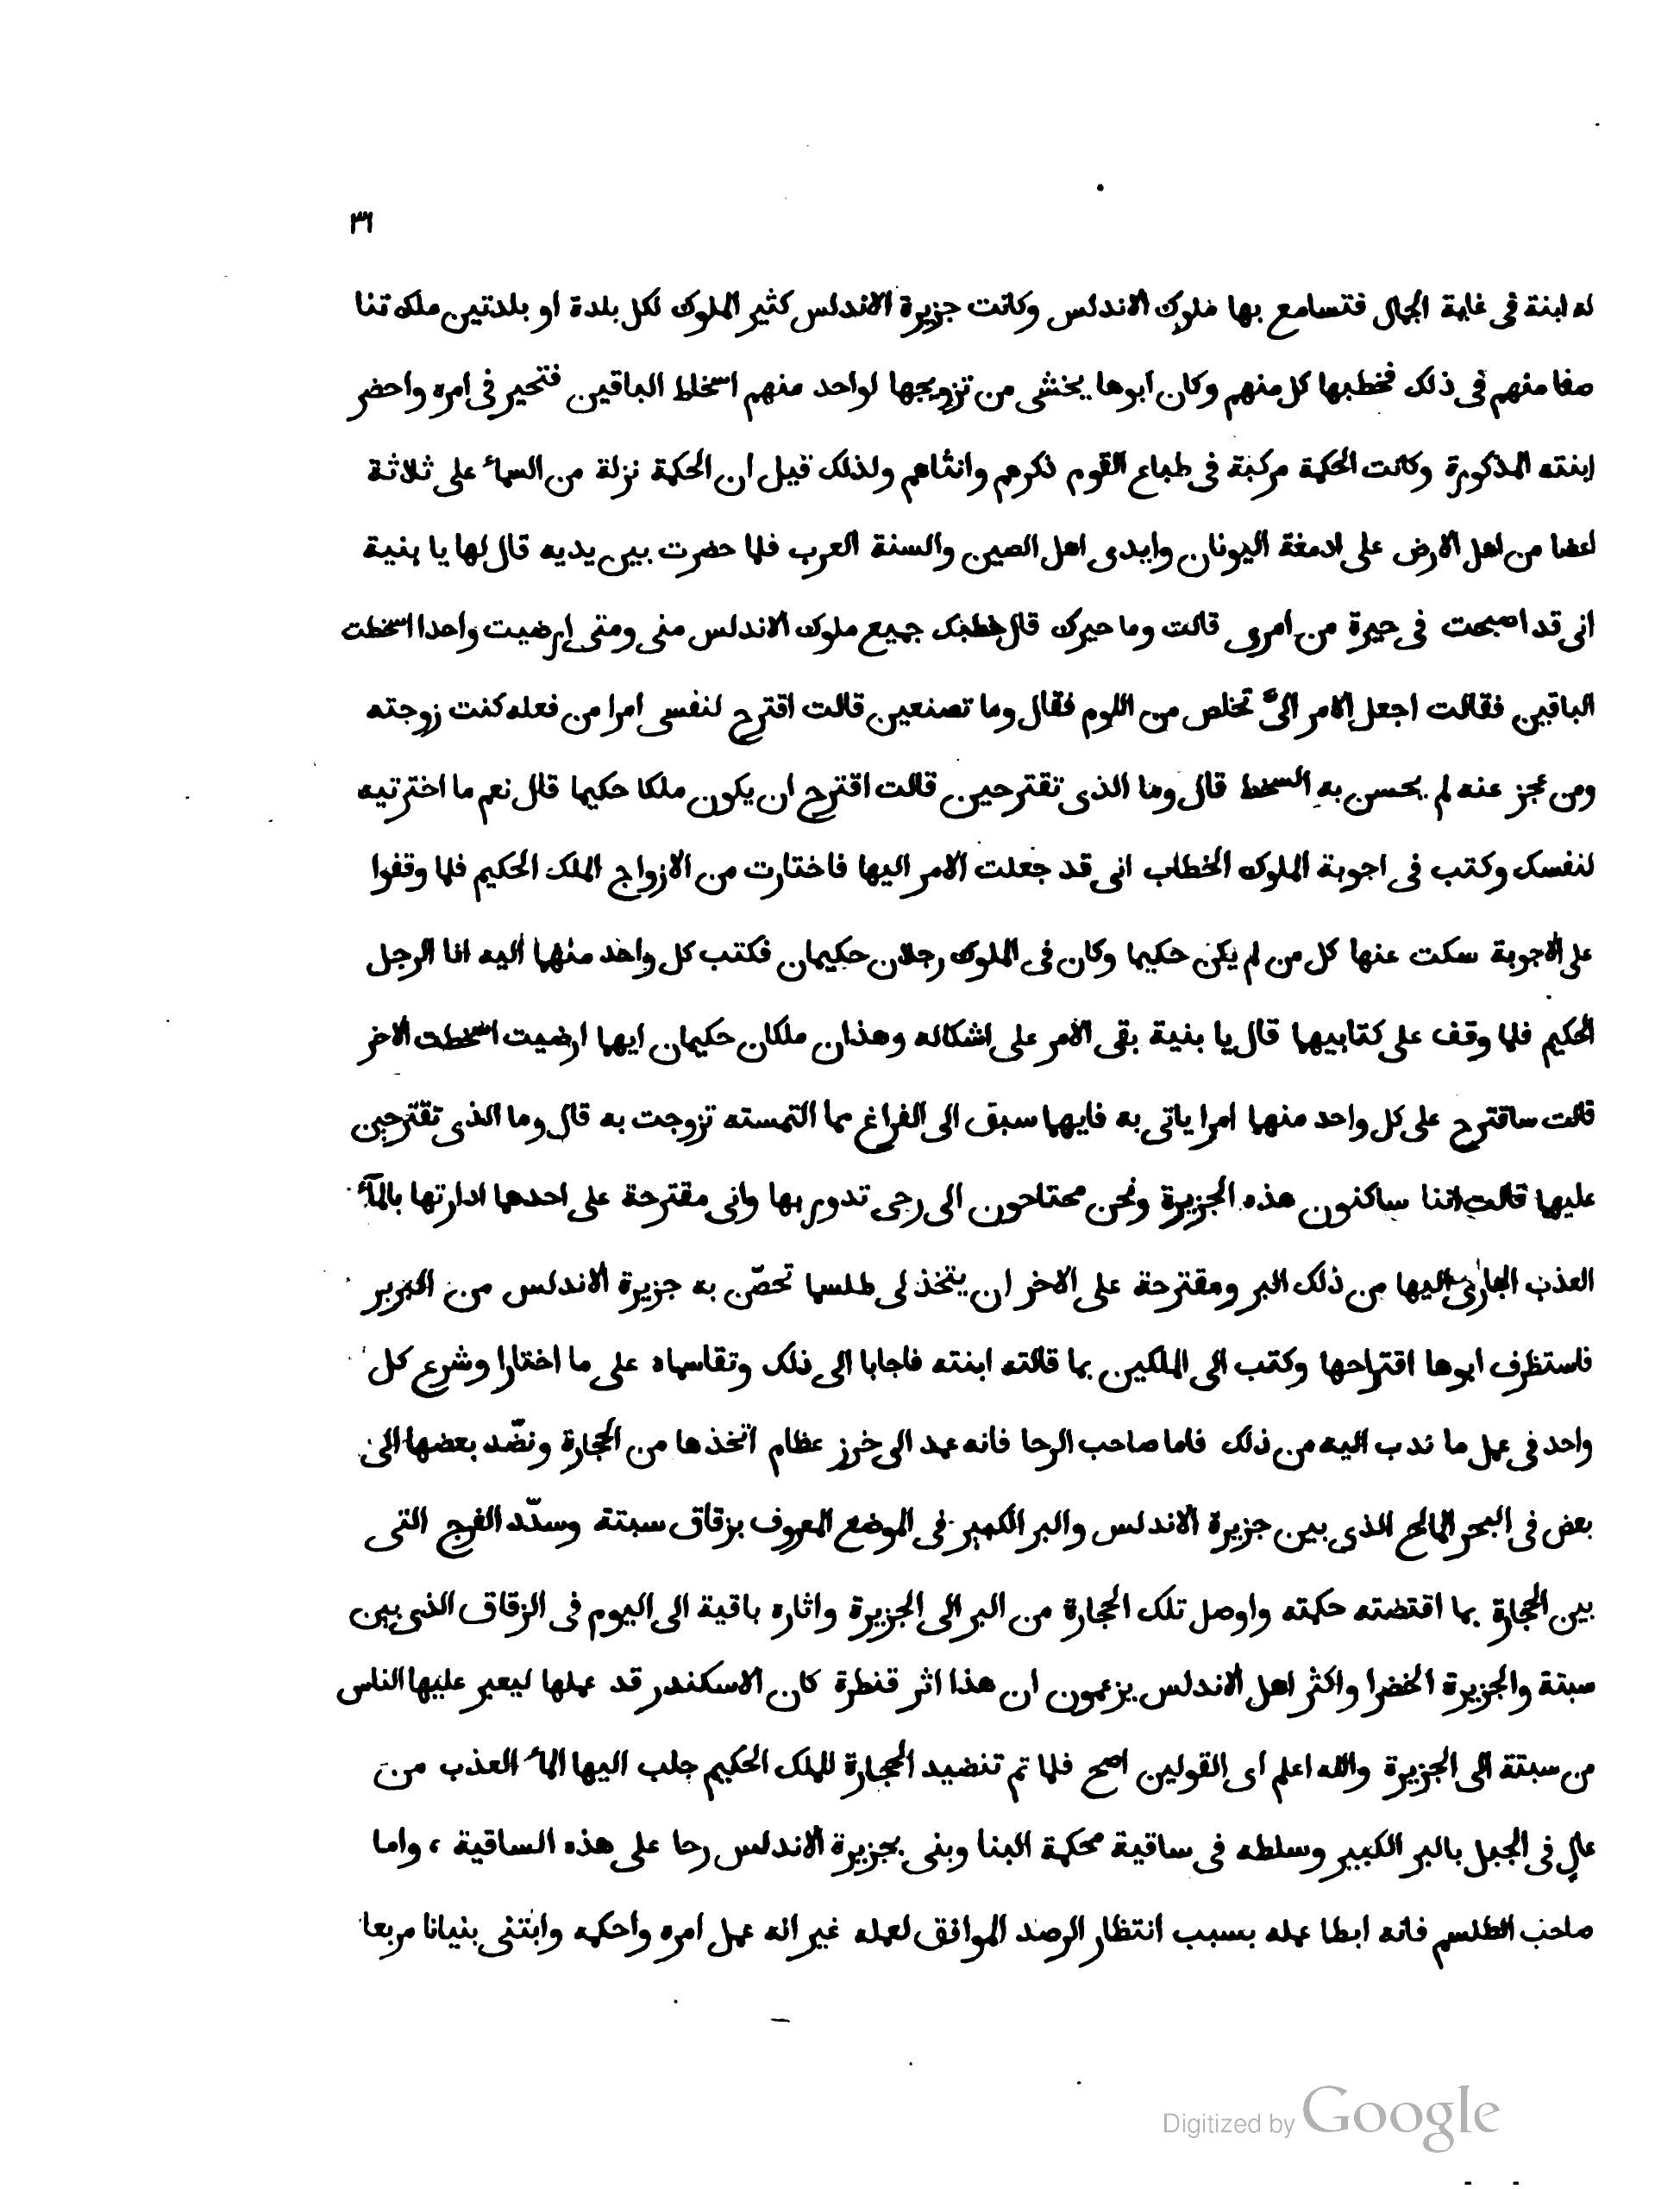 ٣١
له ابنة فى غاية الجمال فتسامع بها ملوك الاندلس وكانت جزيرة الاندلس كثير الملوك لكل بلدة او بلدتين ملك تنا
صفا منهم فى ذلك فخطبها كل منهم وكان ابوها يخشى من تزويجها لواحد منهم اسخاط الباقين فتحير فى امره واحضر
ابنته المذكورة وكانت الحكمة مركبة فى طباع القوم ذكرهم وانثاهم ولذلك قيل ان الحكمة نزلة من السمآء على ثلاثة
اعضا من اهل الارض على ادمغة اليونان وايدى اهل الصين والسنة العرب فلما حضرت بين يديه قال لها يا بنية
انى قد اصبحت فى حيرة من امرى قالت وما حيرك قال خطبك جميع ملوك الاندلس منى ومتى ارضيت واحدا اسخطت
الباقين فقالت اجعل الامر الىّ تخلص من اللوم فقال وما تصنعين قالت اقترح لنفسى امرا من فعله كنت زوجته
ومن عجز عنه لم يحسن به السخط قال وما الذى تقترحين قالت اقترح ان يكون ملكا حكيما قال نعم ما اخترتيه
لنفسك وكتب فى اجوبة الملوك الخطاب انى قد جعلت الامر اليها فاختارت من الازواج الملك الحكيم فلما وقفوا
على الاجوبة سكت عنها كل من لم يكن حكيما وكان فى الملوك رجلان حكيمان فكتب كل واحد منهما اليه انا الرجل
الحكيم فلما وقف على كتابيهما قال يا بنية بقى الامر على اشكاله وهذان ملكان حكيمان ايهما ارضيت اسخطت الاخر
قالت ساقترح على كل واحد منهما امرا ياتى به فايهما سبق الى الفراغ مما التمسته تزوجت به قال وما الذى تقترحين
عليهما قالت اننا ساكنون هذه الجزيرة ونحن محتاجون الى رحى تدور بها وانى مقترحة على احدهما ادارتها بالمآء
العذب الجارى اليها من ذلك البر ومقترحة على الاخر ان يتخذ لى طلسما تحصّن به جزيرة الاندلس من البربر
فاستظرف ابوها اقتراحها وكتب الى الملكين بما قالته ابنته فاجابا الى ذلك وتقاسماه على ما اختارا وشرع كل
واحد فى عمل ما ندب اليه من ذلك فاما صاحب الرحا فانه عمد الى خرز عظام اتخذها من الحجارة ونضّد بعضها الى
بعض فى البحر المالح الذى بين جزيرة الاندلس والبر الكبير فى الموضع المعروف بزقاق سبتة وسدّد الفرج التى
بين الحجارة بما اقتضته حكمته واوصل تلك الحجارة من البر الى الجزيرة واثاره باقية الى اليوم فى الزقاق الذى بين
سبتة والجزيرة الخضرا واكثر اهل الاندلس يزعمون ان هذا اثر قنطرة كان الاسكندر قد عملها ليعبر عليها الناس
من سبتة الى الجزيرة والله اعلم اى القولين اصح فلما تم تنضيد الحجارة للملك الحكيم جلب اليها المآء العذب من
عالٍ فى الجبل بالبر الكبير وسلطه فى ساقية محكمة البنا وبنى بجزيرة الاندلس رحا على هذه الساقية ، واما
صاحب الطلسم فانه ابطا عمله بسبب انتظار الرصد الموافق لعمله غير انه عمل امره واحكمه وابتنى بنيانا مربعا
Digitized by Google